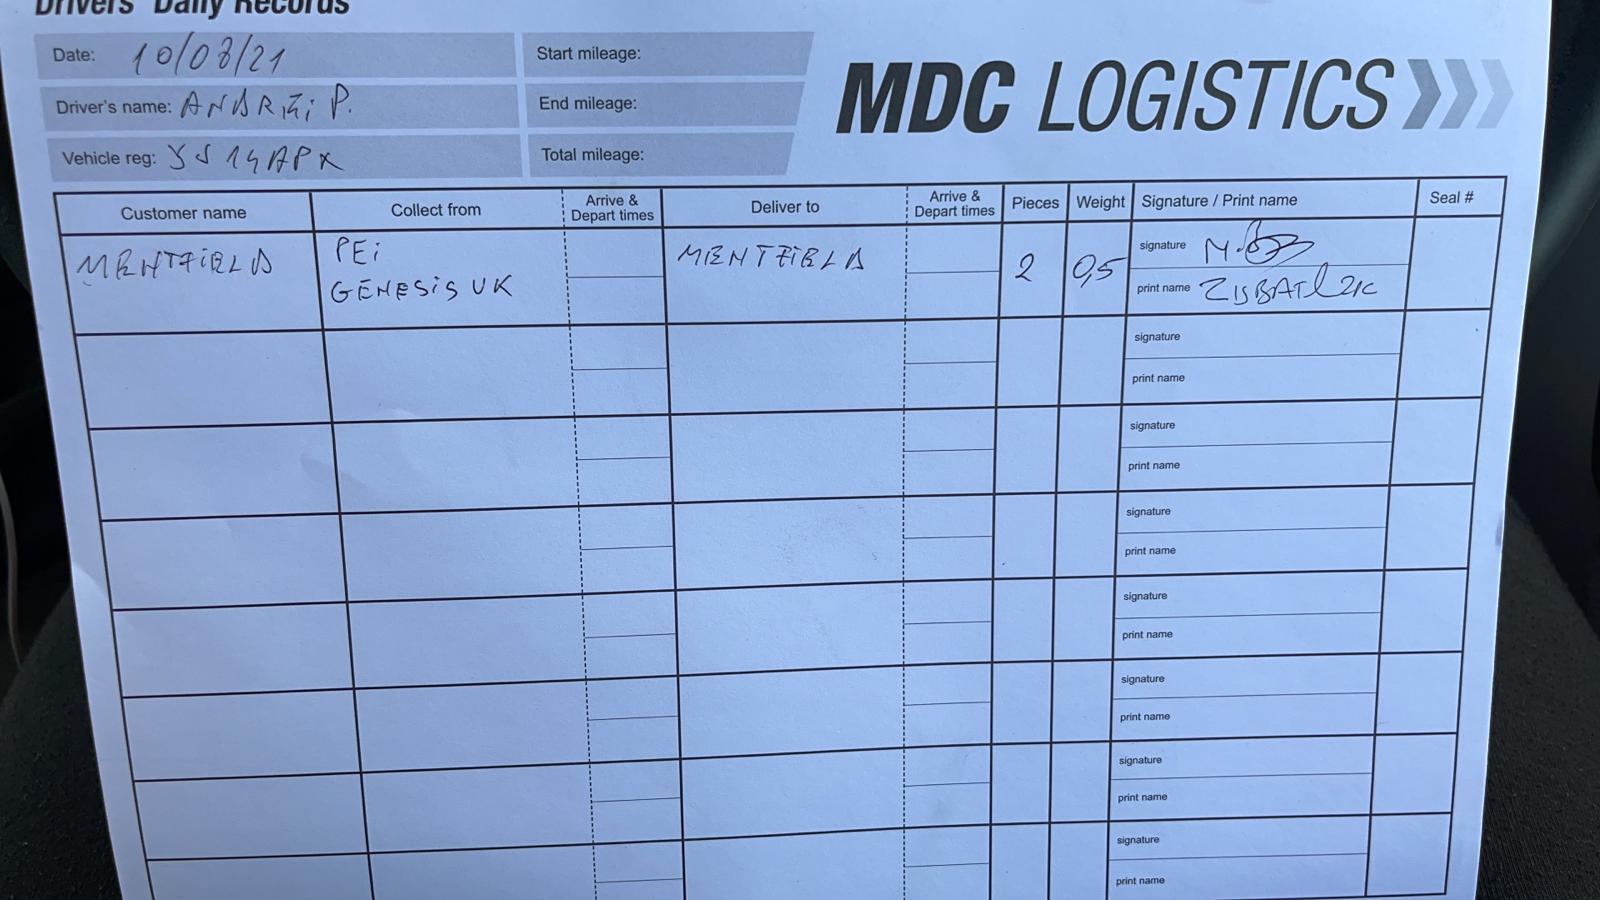 Drivers' Daily Records
Date: 10/08/21
Start mileage:
Driver's name: ANDREI P.
End mileage:
Vehicle reg:
Total mileage:
MDC LOGISTICS
Customer name Collect from Arrive & Depart times Deliver to Arrive & Depart times Pieces Weight Signature / Print name Seal #
MENTFIELD PEI GENESIS UK MENTFIELD 2 0,5 signature
print name
signature
print name
signature
print name
signature
print name
signature
print name
signature
print name
signature
print name
signature
print name